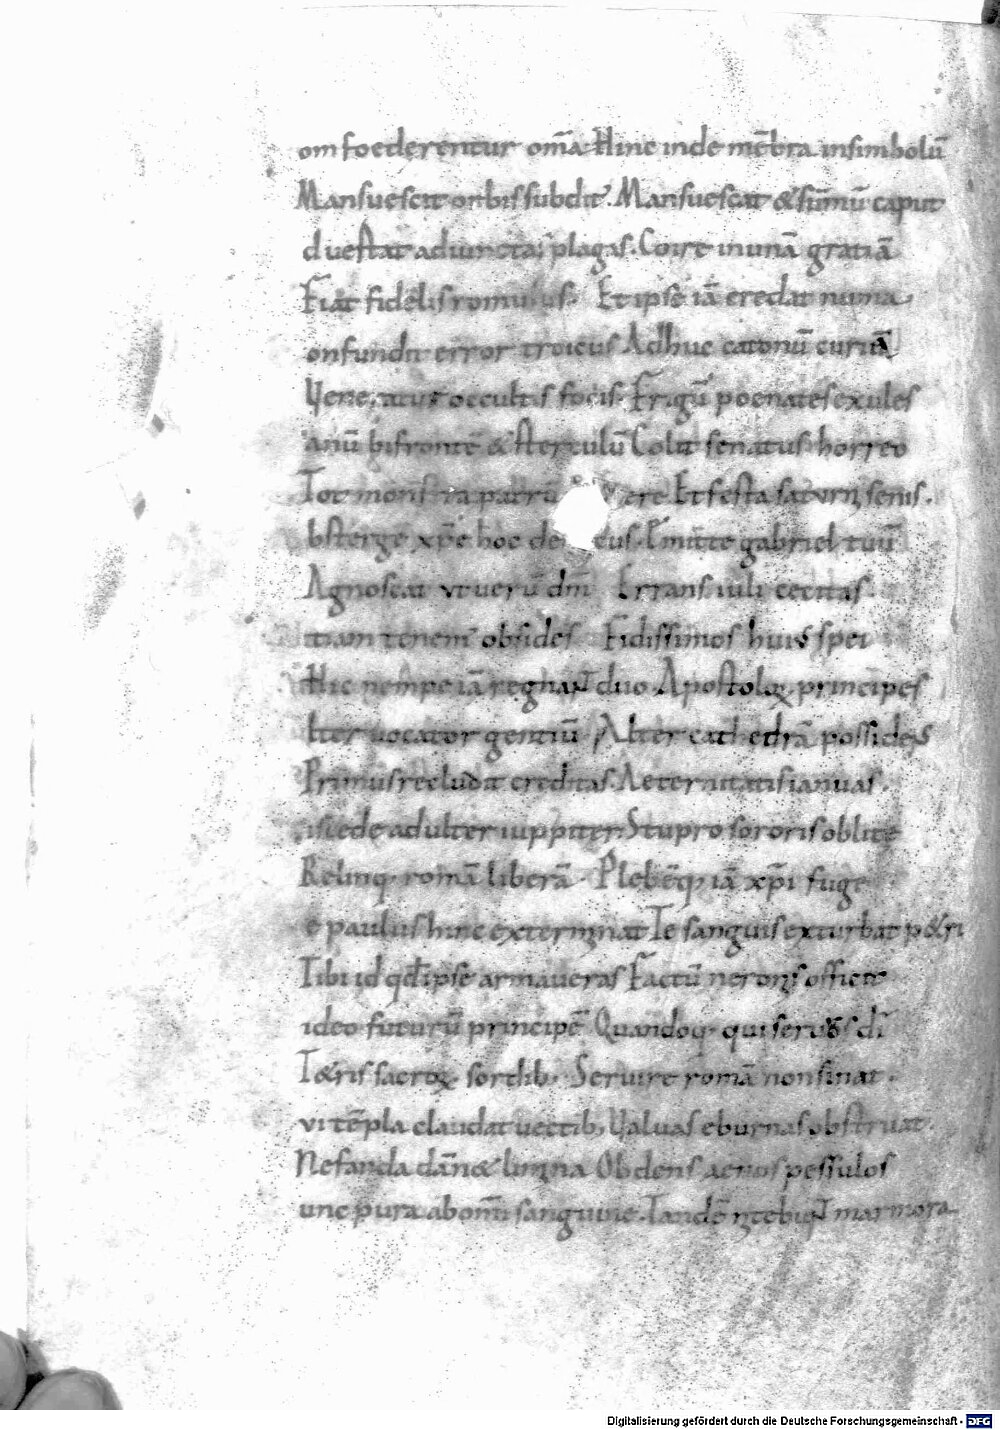 omfoederentur om̄a Hinc inde mēbra insimbolū
Mansuescit orbis subdit᷒. Mansuescat & sūmū caput
duestat adiunctas plagas. Coire inunā gratiā
Fiat fidelis romulus. Et ipse iā credat numa,
onfundit error troicus Adhuc catonū curiā
Veneratur occultis focis. Frigū poenates exules
anū bifrontē & sterculū Colit senatus horreo
Tot monstra patrū ere Et festa saturni senis.
bsterge xp̄e hoc de cus. Emitte gabriel tuū
Agnoscat ut uerū dm̄ Errans iuli cecitas
tiam tenem᷒ obsides Fidissimos huius spei
Hic nempe iā regnant duo Apostoloꝝ principes
lter uocator gentiū Alter cathedrā possidens
Primus recludit creditas. Aeternitatis ianuas.
iscede adulter iuppiter. Stupro sororis oblite
Relinq; romā liberā Plebēq; iā xp̄i fuge
e paulus hinc exterminat Te sanguis exturbat p&ri
Tibi id qd̄ ipse armaueras Factū neronis officit
ideo futurū principē Quandoq; qui seruus dī
T&ris sacroꝝ sordib; Seruire romā non sinat.
vi tēpla claudat uectib; Valuas eburnas obstruat.
Nefanda dān& limina Obdens aenos pessulos
unc pura abom̄i sanguine. Tandē nitebunt marmora